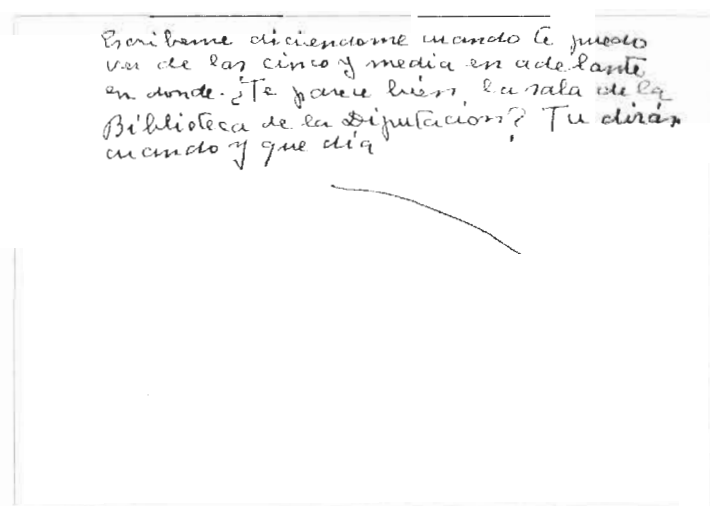 Escribeme diciendome cuando te puedo
ver de las cinco y media en adelante
en donde. ¿Te parece bien, la sala de la
Biblioteca de la Diputación? Tu dirás
cuando y que día